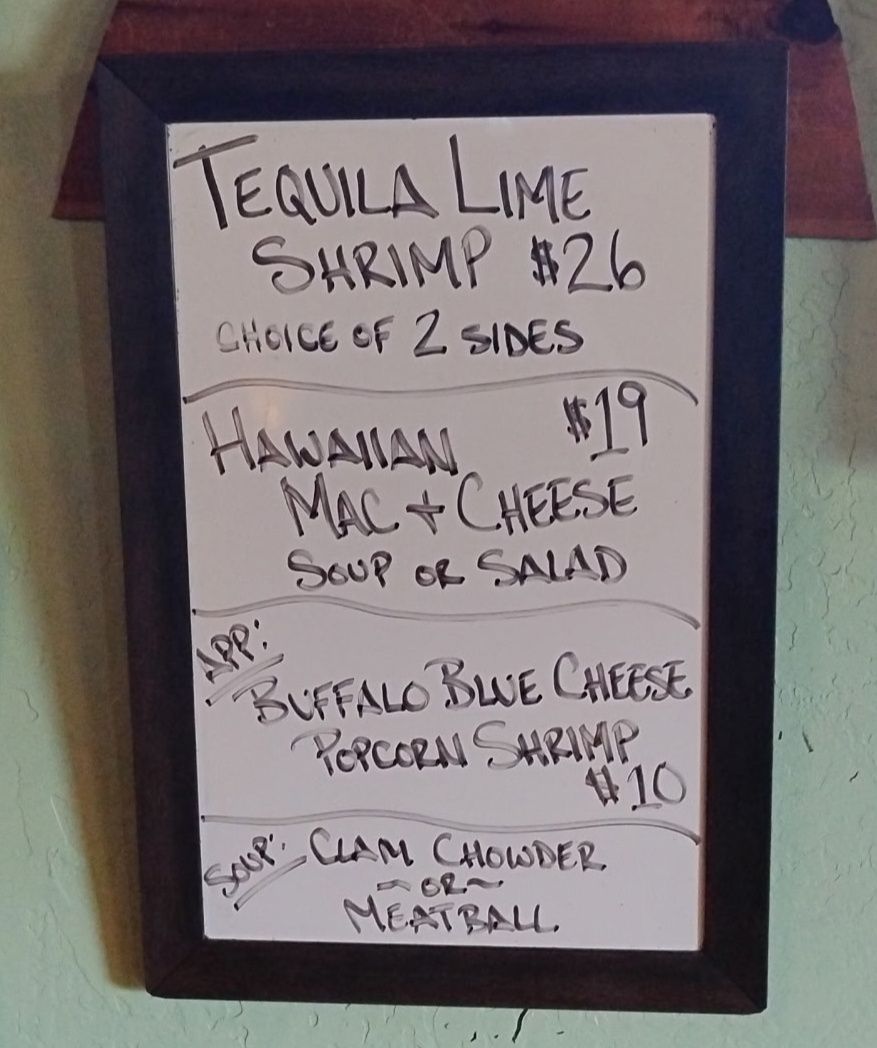 TEQUILA LIME
SHRIMP $26
CHOICE OF 2 SIDES
HAWAIIAN $19
MAC + CHEESE
SOUP OR SALAD
APP:
BUFFALO BLUE CHEESE
POPCORN SHRIMP
$10
SOUP: CLAM CHOWDER
~OR~
MEATBALL